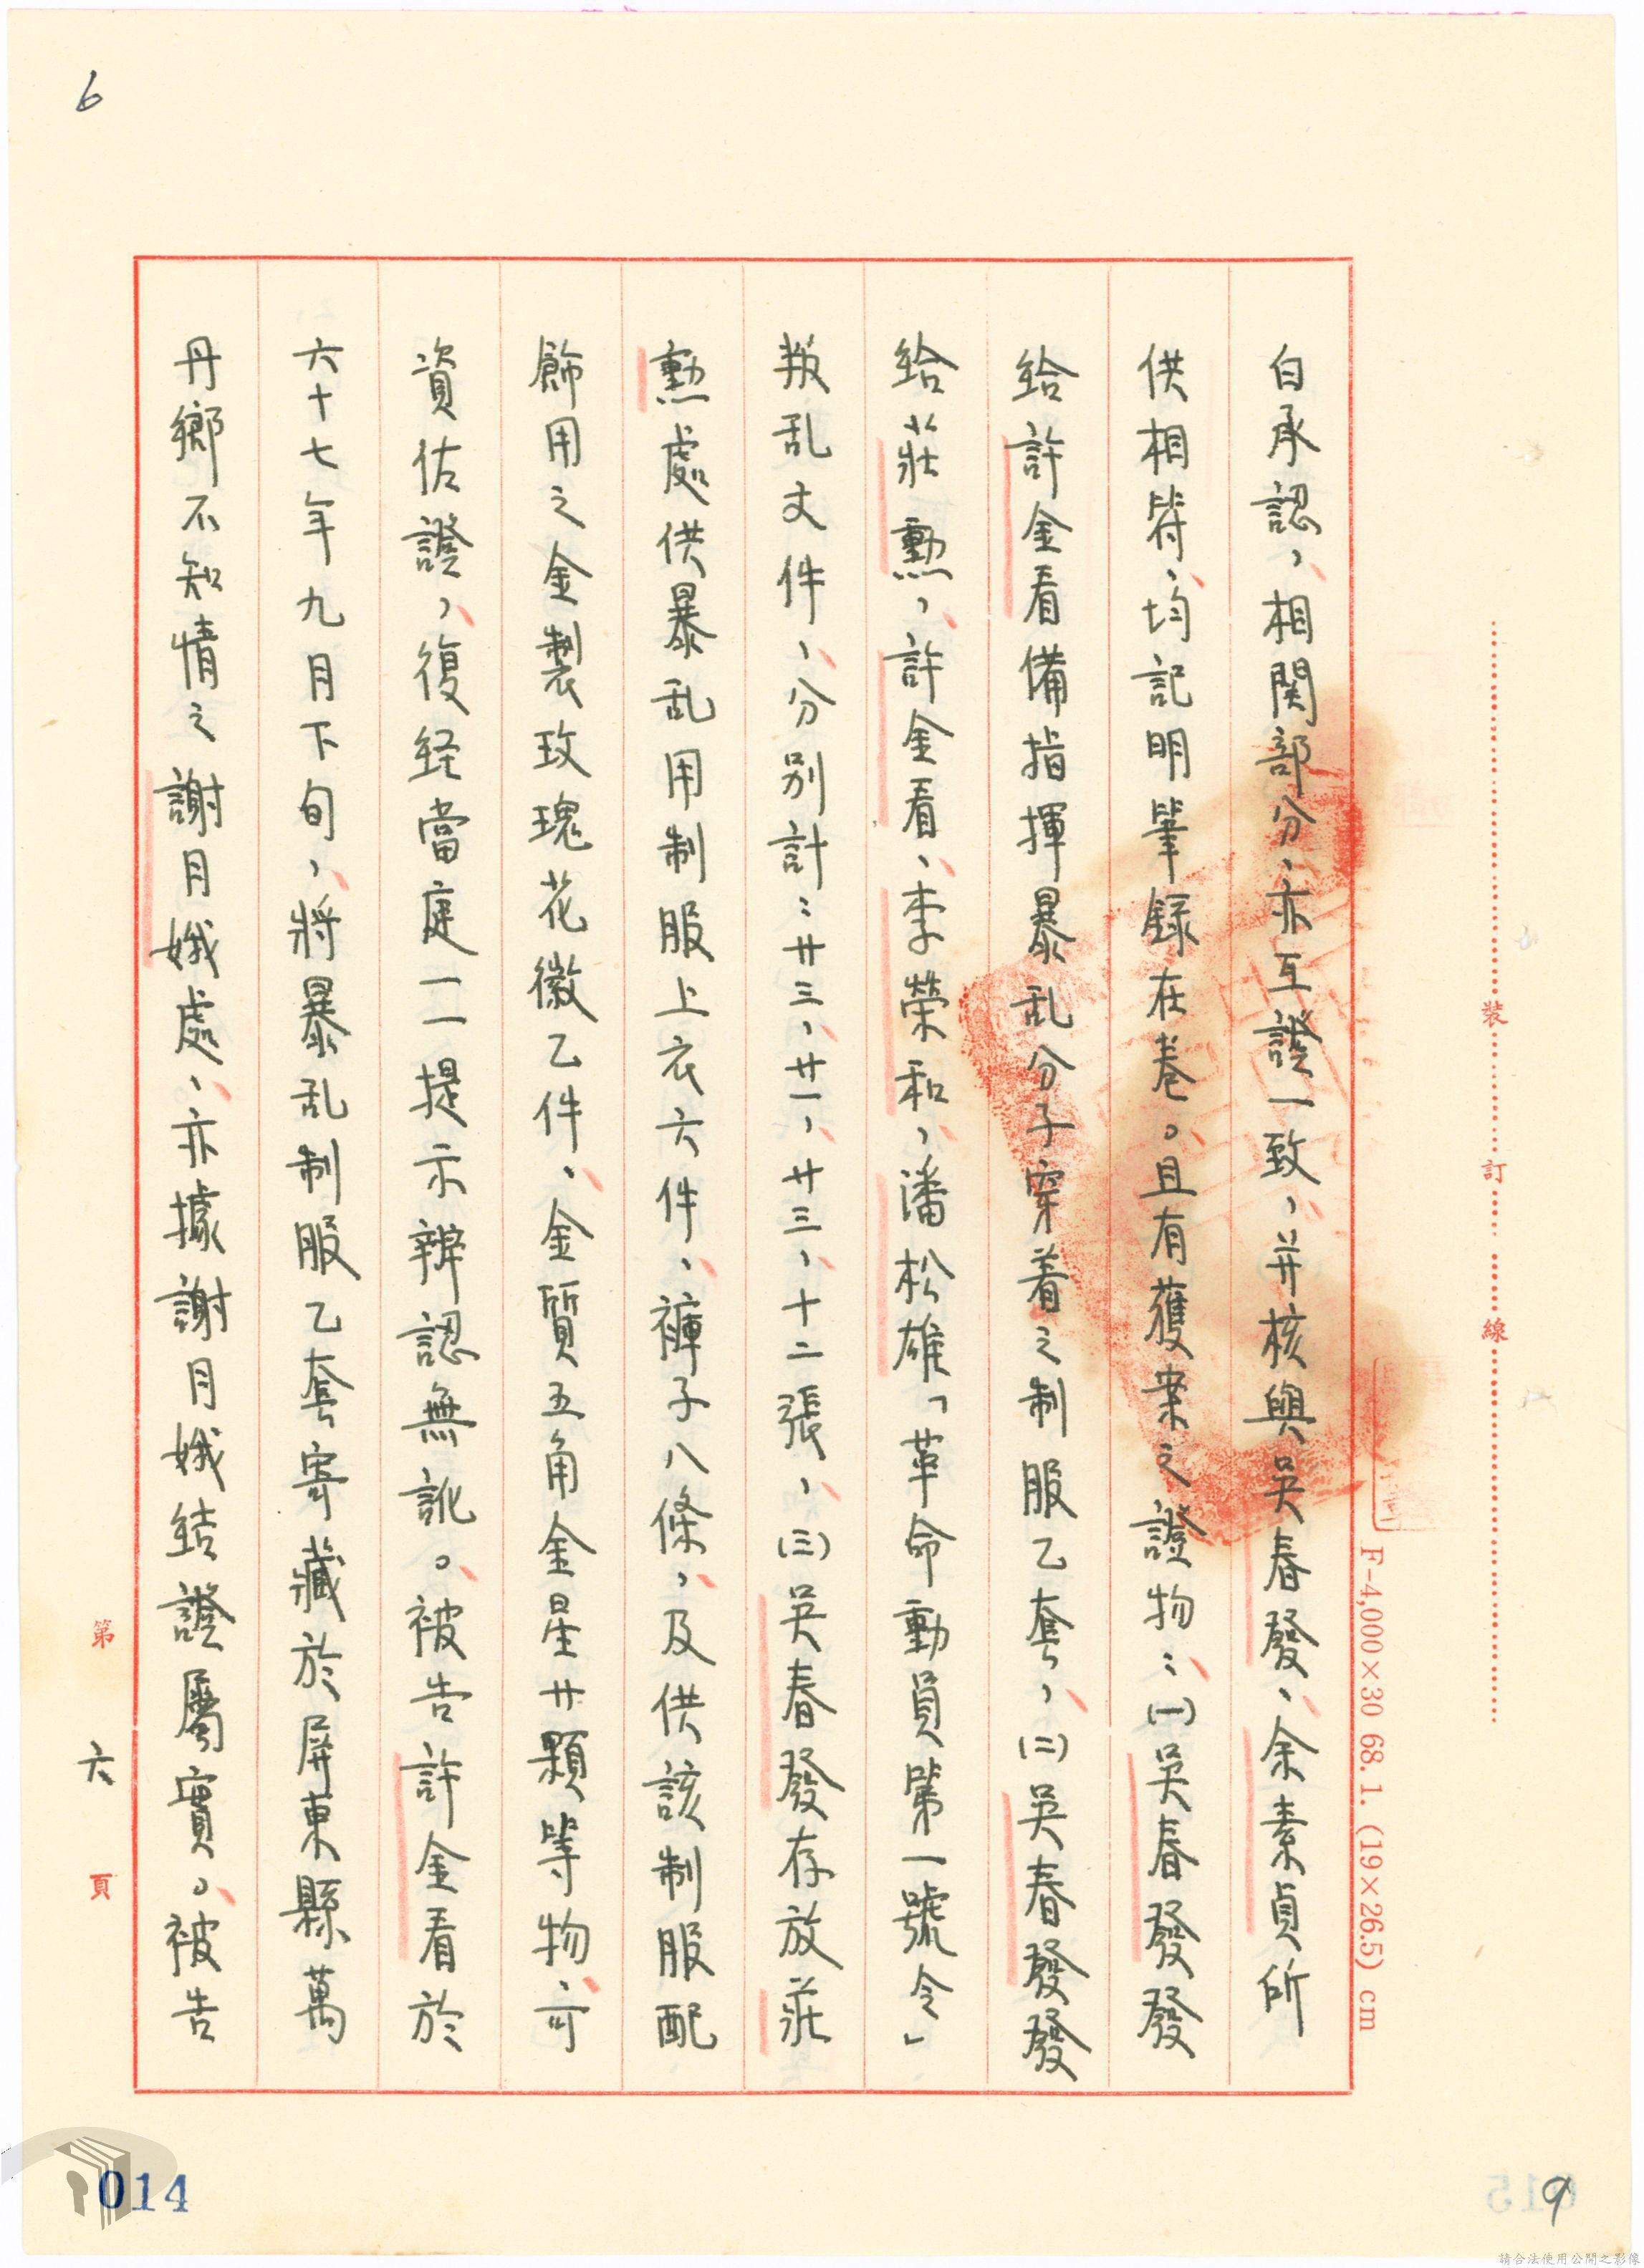 6
白承認，相関部分，亦互證一致，并核與吳春發、余素貞所
供相符，均記明筆錄在卷。且有獲案之證物：㈠吳春發發
給許金看備指揮暴乱分子穿着之制服乙套，㈡吳春發發
給莊勳，許金看，李榮和，潘松雄「革命動員第一號令」
叛乱文件，分別計：廿三，廿一，廿三，十二張，㈢吳春發存放莊
勳處供暴乱用制服上衣六件，褲子八條，及供該制服配
飾用之金製玫瑰花徽乙件，金質五角金星廿顆等物，可
資佐證，復经當庭一一提示辨認無訛。被告許金看於
六十七年九月下旬，將暴乱制服乙套寄藏於屏東縣萬
丹鄉不知情之謝月娥處，亦據謝月娥結證屬實。被告
第六頁
裝訂線
F-4,000×30 68.1. (19×26.5) cm
014
9
請合法使用公開之影像